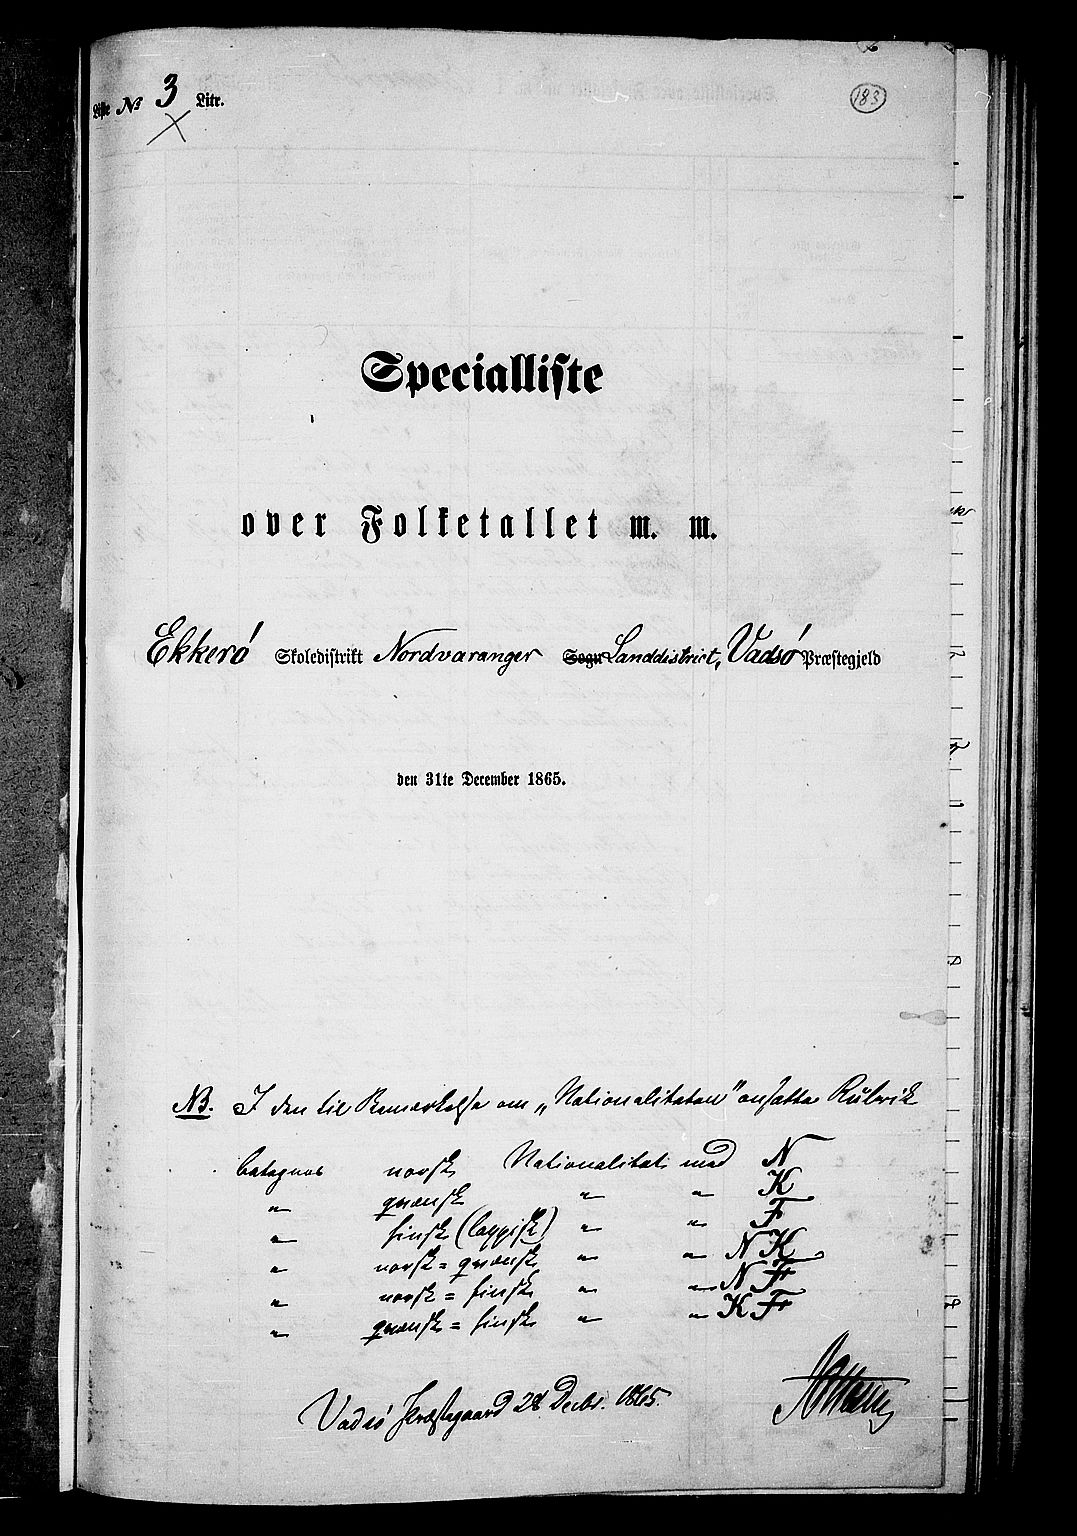 Liste № 3 Litr.
183
Specialliste
over Folketallet m. m.
Ekkerö Skoledistrikt Nordvaranger Sogn Landdistrict, Vadsö Præstegjeld
den 31te December 1865.
NB. I den til Bemærkelse om „Nationaliteten” ansatte Rubrik
betegnes norsk Nationalitet med N
„ qvænsk „ „ K
„ finsk (lappisk) „ „ F
„ norsk=qvænsk „ „ NK
„ norsk=finsk „ „ NF
„ qvænsk=finsk „ „ KF
Vadsö Præstegaard 28 Decbr. 1865.